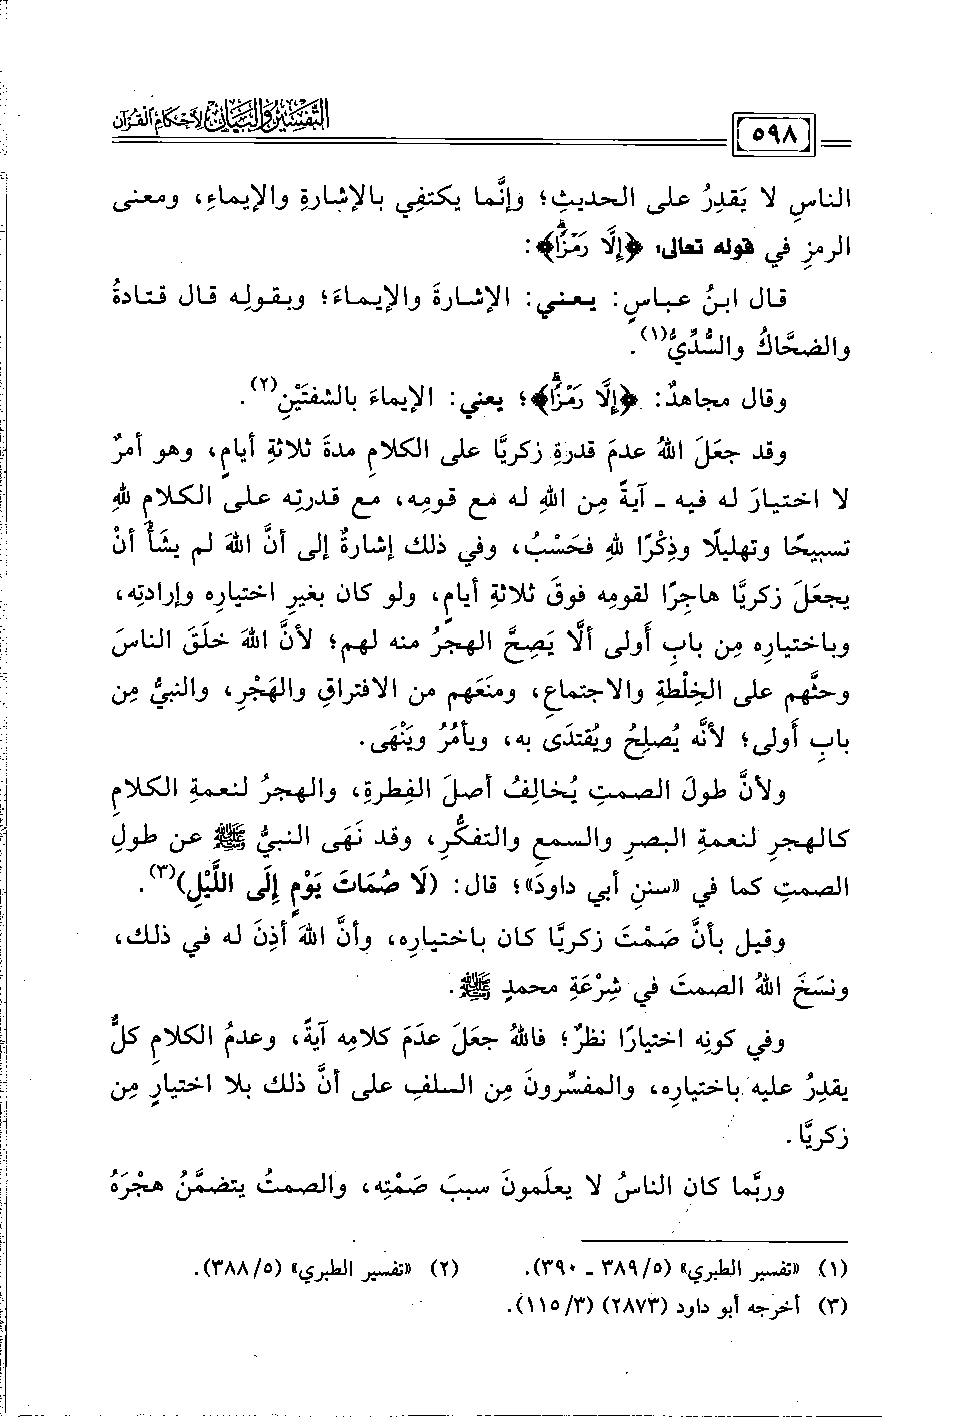 التفسير والبيان لأحكام القرآن
٥٩٨
الناسِ لا يَقدِرُ على الحديثِ؛ وإنَّما يكتفِي بالإشارةِ والإيماءِ، ومعنى
الرمزِ في قوله تعالى: ﴿إِلَّا رَمْزًا﴾:
قال ابنُ عباسٍ: يعني: الإشارةَ والإيماءَ؛ وبقولِه قال قتادةُ
والضحَّاكُ والسُّدِّيُّ(١).
وقال مجاهدٌ: ﴿إِلَّا رَمْزًا﴾؛ يعني: الإيماءَ بالشفتَيْنِ(٢).
وقد جعَلَ اللهُ عدمَ قدرةِ زكريَّا على الكلامِ مدةَ ثلاثةِ أيامٍ، وهو أمرٌ
لا اختيارَ له فيه ـ آيةً مِن اللهِ له مع قومِه، مع قدرتِه على الكلامِ للهِ
تسبيحًا وتهليلًا وذِكْرًا للهِ فحَسْبُ، وفي ذلك إشارةٌ إلى أنَّ اللهَ لم يشَأْ أنْ
يجعَلَ زكريَّا هاجِرًا لقومِه فوقَ ثلاثةِ أيامٍ، ولو كان بغيرِ اختيارِه وإرادتِه،
وباختيارِه مِن بابِ أَولى ألَّا يَصِحَّ الهجرُ منه لهم؛ لأنَّ اللهَ خلَقَ الناسَ
وحثَّهم على الخِلْطةِ والاجتماعِ، ومنَعَهم من الافتراقِ والهَجْرِ، والنبيُّ مِن
بابِ أَولى؛ لأنَّه يُصلِحُ ويُقتدَى به، ويأمُرُ ويَنْهَى.
ولأنَّ طولَ الصمتِ يُخالِفُ أصلَ الفِطرةِ، والهجرُ لنعمةِ الكلامِ
كالهجرِ لنعمةِ البصرِ والسمعِ والتفكُّرِ، وقد نَهَى النبيُّ ﷺ عن طولِ
الصمتِ كما في «سننِ أبي داودَ»؛ قال: (لَا صُمَاتَ يَوْمٍ إِلَى اللَّيْلِ)(٣).
وقيل بأنَّ صَمْتَ زكريَّا كان باختيارِه، وأنَّ اللهَ أَذِنَ له في ذلك،
ونسَخَ اللهُ الصمتَ في شِرْعَةِ محمدٍ ﷺ.
وفي كونِه اختيارًا نظرٌ؛ فاللهُ جعَلَ عدَمَ كلامِه آيةً، وعدمُ الكلامِ كلٌّ
يقدِرُ عليه باختيارِه، والمفسِّرونَ مِن السلفِ على أنَّ ذلك بلا اختيارٍ مِن
زكريَّا.
وربَّما كان الناسُ لا يعلَمونَ سببَ صَمْتِه، والصمتُ يتضمَّنُ هجْرَهُ
(١) «تفسير الطبري» (٥/ ٣٨٩ ـ ٣٩٠). (٢) «تفسير الطبري» (٥/ ٣٨٨).
(٣) أخرجه أبو داود (٢٨٧٣) (٣/ ١١٥).